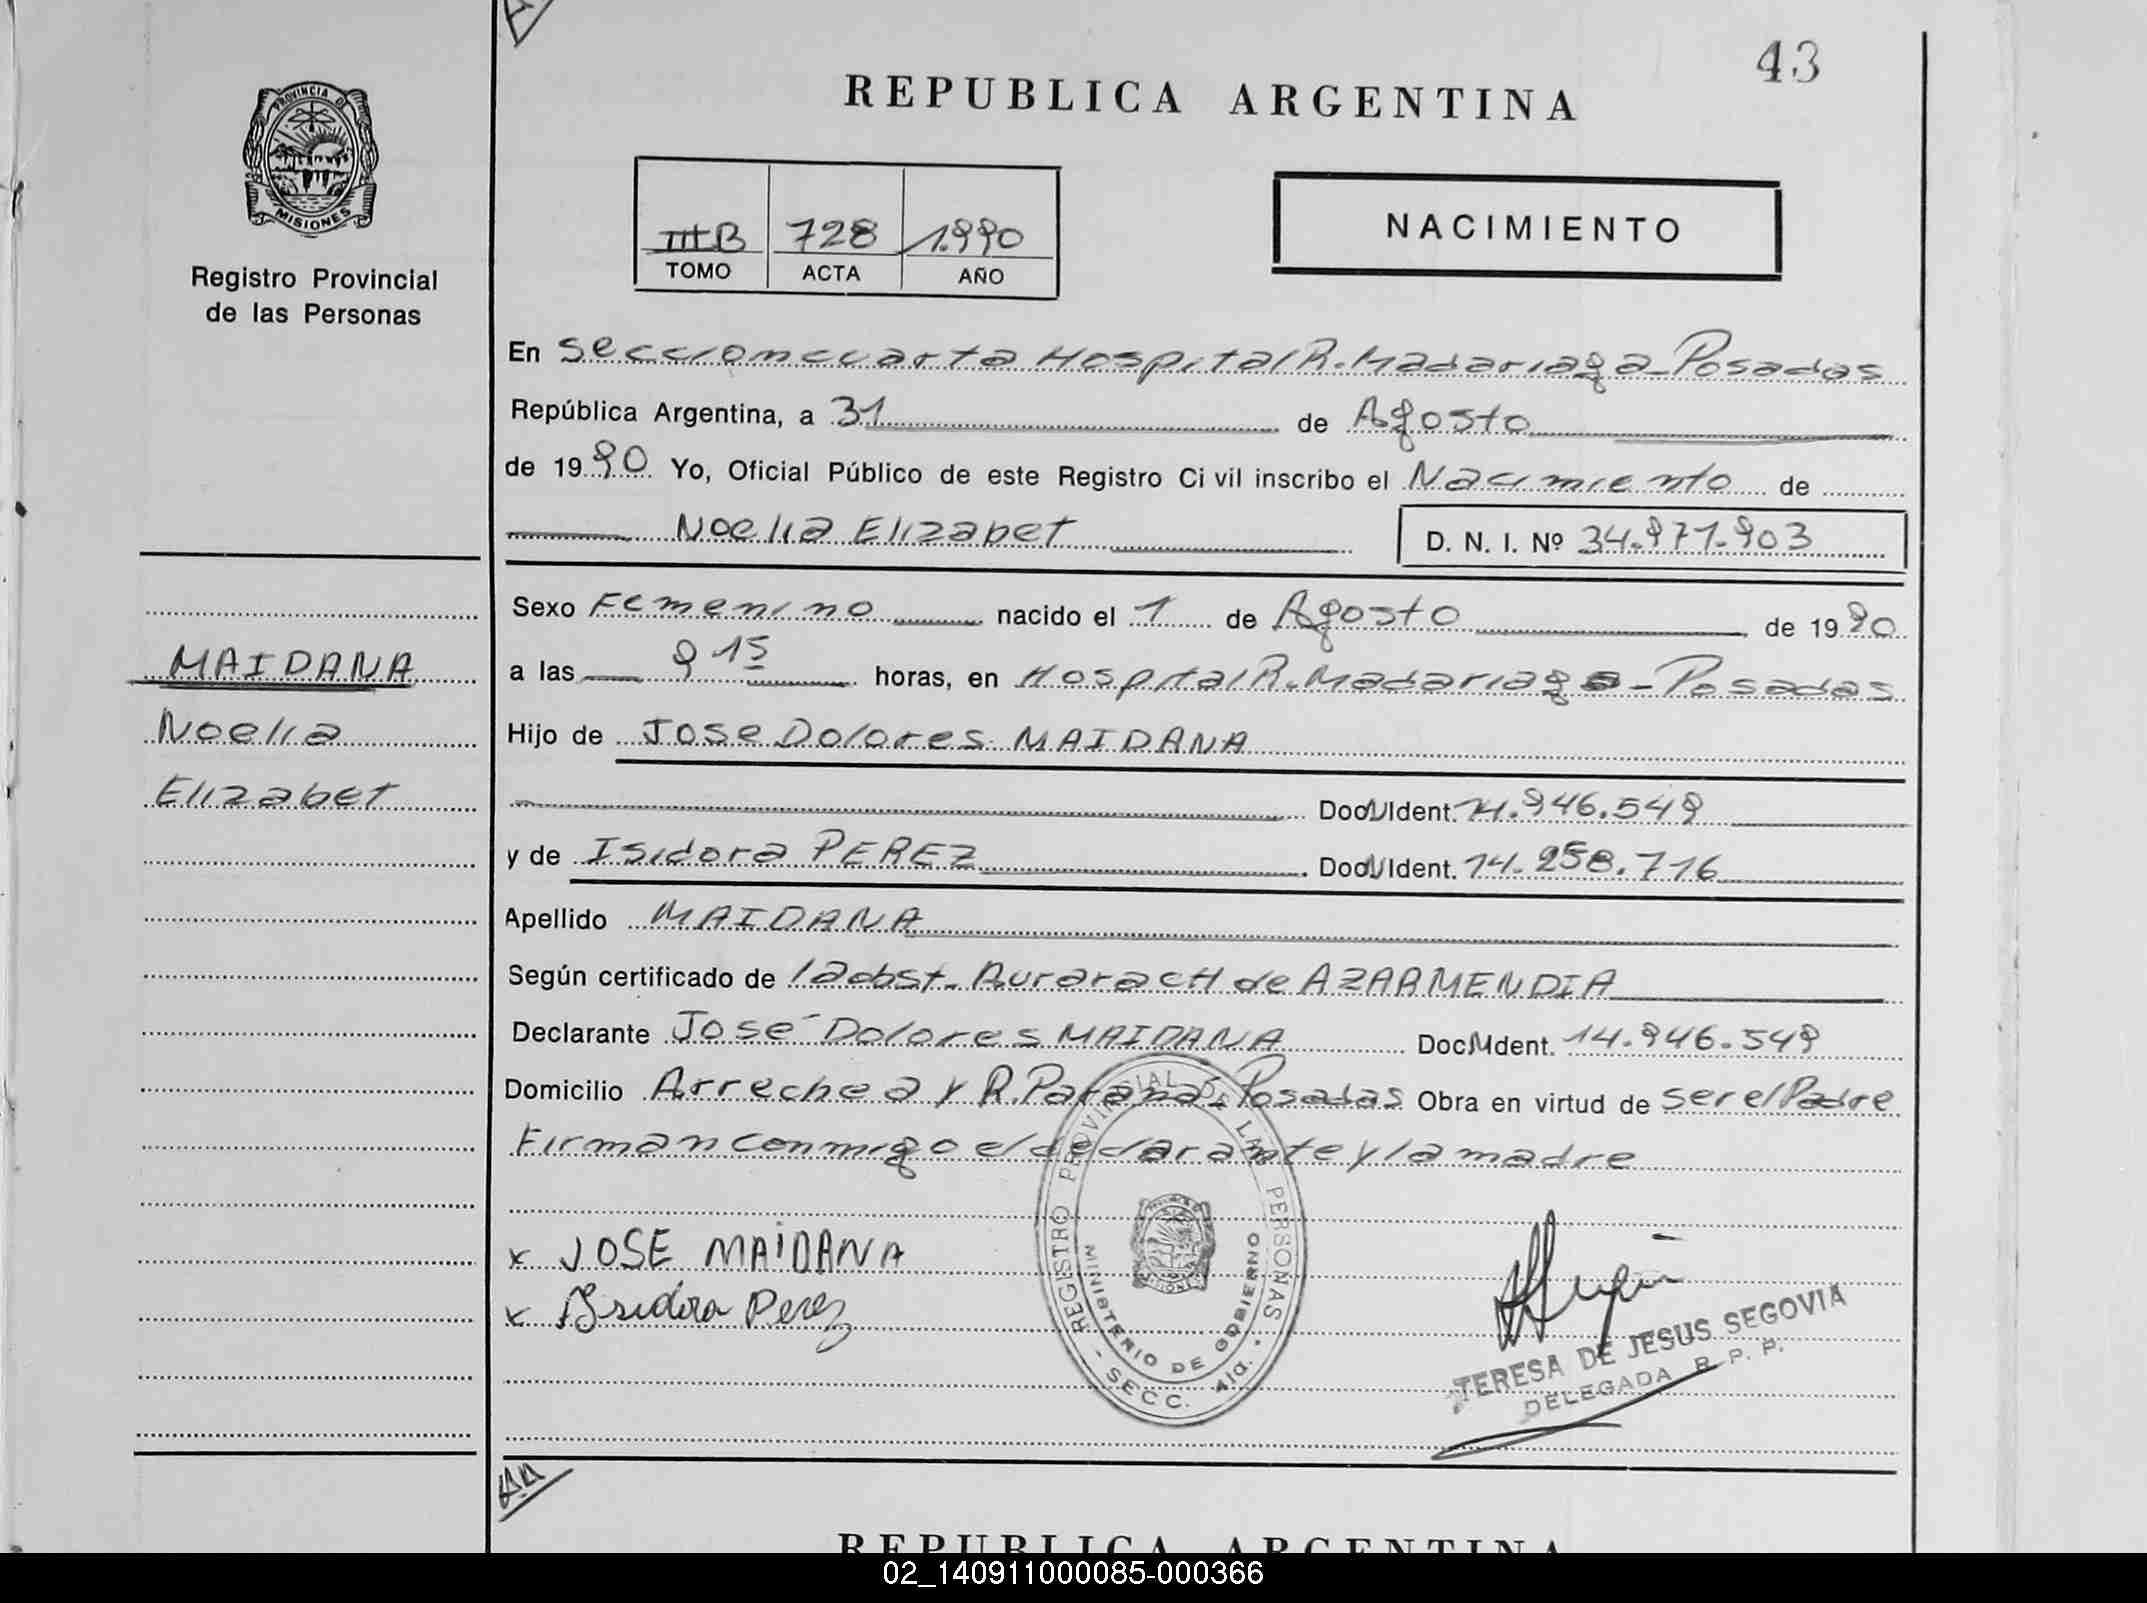 43
REPUBLICA ARGENTINA
PROVINCIA DE
MISIONES
Registro Provincial
de las Personas
III B 728 1.990
TOMO ACTA AÑO
NACIMIENTO
En Seccion cuarta Hospital R. Madariaga - Posadas
República Argentina, a 31 de Agosto
de 1990 Yo, Oficial Público de este Registro Civil inscribo el Nacimiento de
Noelia Elizabet D. N. I. Nº 34.971.903
Sexo Femenino nacido el 1 de Agosto de 1990
MAIDANA
a las 9 15 horas, en Hospital R. Madariaga - Posadas
Noelia
Hijo de Jose Dolores MAIDANA
Elizabet
Doc. Ident. 14.946.549
y de Isidora PEREZ Doc. Ident. 14.258.716
Apellido MAIDANA
Según certificado de la obst. Aurora CH de AZARMENDIA
Declarante José Dolores MAIDANA Doc. Ident. 14.946.549
Domicilio Arrechea y R. Paraná - Posadas Obra en virtud de ser el Padre
Firman conmigo el declarante y la madre
x JOSE MAIDANA
x Isidora Perez
REGISTRO PROVINCIAL DE LAS PERSONAS
MINISTERIO DE GOBIERNO
SECC. 4ta.
TERESA DE JESUS SEGOVIA
DELEGADA R. P. P.
REPUBLICA ARGENTINA
02_140911000085-000366